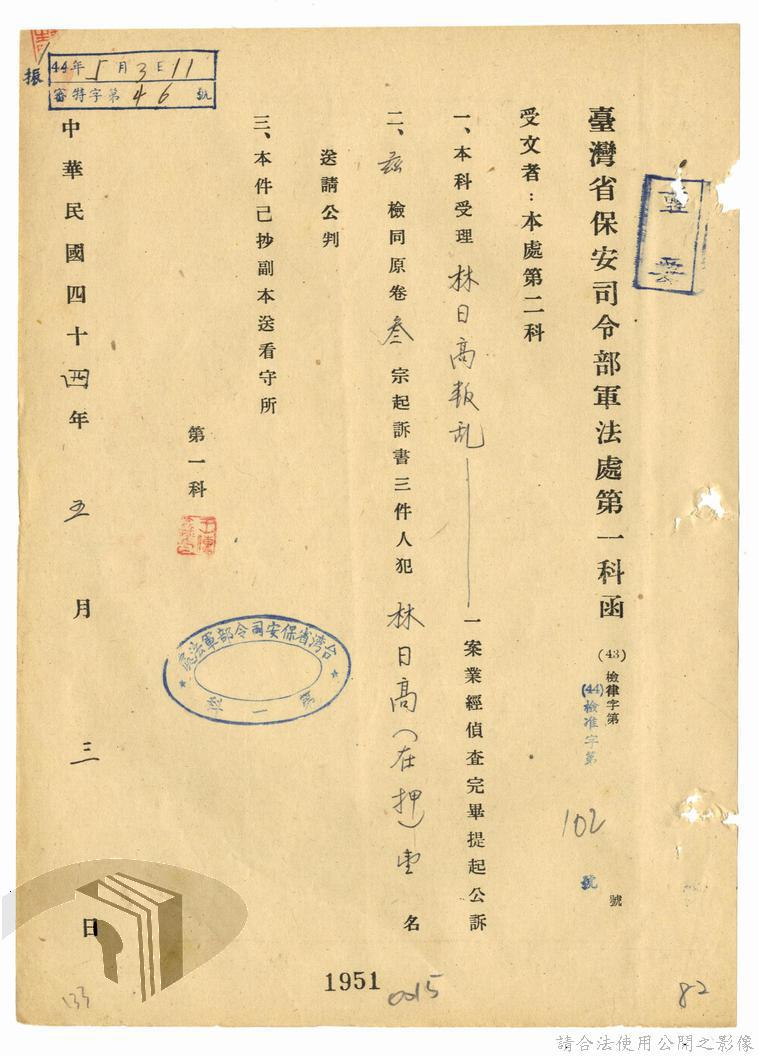 臺灣省保安司令部軍法處第一科函
(43)檢律字第
號
(44)檢准字第
102
號
受文者：本處第二科
一、本科受理 林日高叛乱 一案業經偵查完畢提起公訴
二、茲檢同原卷叁宗起訴書三件人犯 林日高(在押)壹名
送請公判
三、本件己抄副本送看守所
第一科
台湾省保安司令部軍法處
第一科
中華民國四十四年五月三日
44年5月3日11
審特字第46號
振
1951
0015
133
82
請合法使用公開之影像